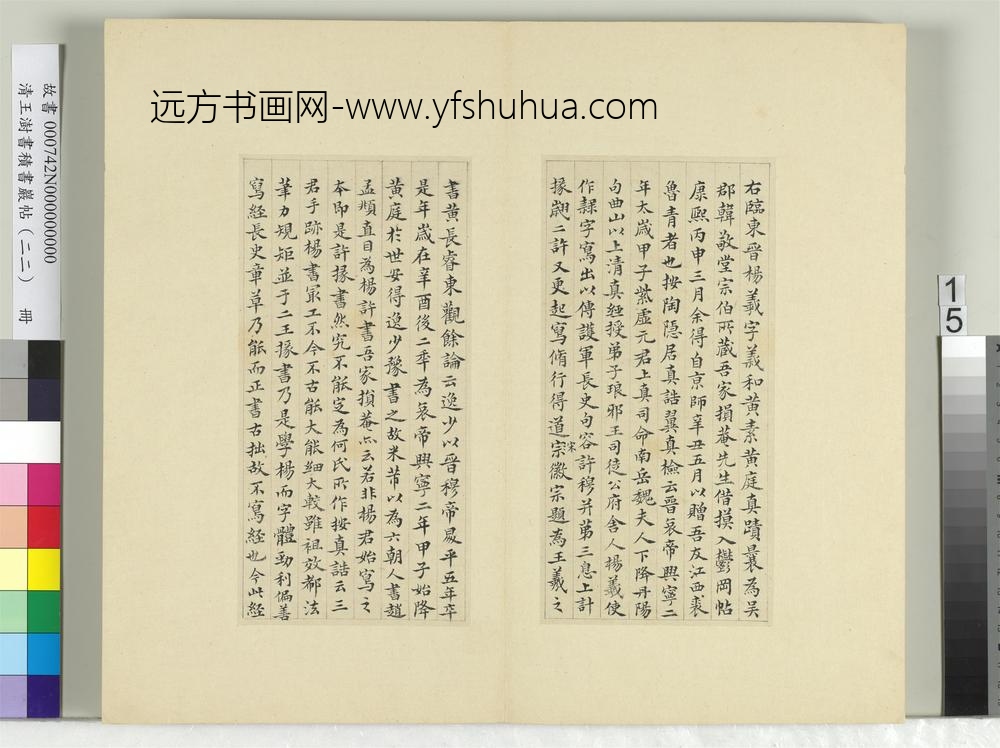 远方书画网-www.yfshuhua.com
故書 000742N000000000
清王澍書積書巖帖(二二) 冊
右臨東晉楊羲字羲和黃素黃庭真蹟曩為吳
郡韓敬堂宗伯所藏吾家損菴先生借摸入鬱岡帖
康熙丙申三月余得自京師辛丑五月以贈吾友江西裘
魯青者也按陶隱居真誥翼真檢云晉哀帝興寧二
年太歲甲子紫虛元君上真司命南岳魏夫人下降丹陽
句曲山以上清真經授弟子琅邪王司徒公府舍人楊羲使
作隸字寫出以傳護軍長史句容許穆并弟三息上計
掾翽二許又更起寫脩行得道宋徽宗題為王羲之
書黃長睿東觀餘論云逸少以晉穆帝昇平五年卒
是年歲在辛酉後二年為哀帝興寧二年甲子始降
黃庭於世安得逸少豫書之故米芾以為六朝人書趙
孟頫直目為楊許書吾家損菴亦云若非楊君始寫之
本即是許掾書然究不能定為何氏所作按真誥云三
君手跡楊書冣工不今不古能大能細大較雖祖效郗法
筆力規矩並于二王掾書乃是學楊而字體勁利偏善
寫經長史章草乃能而正書古拙故不寫經也今此經
1
5